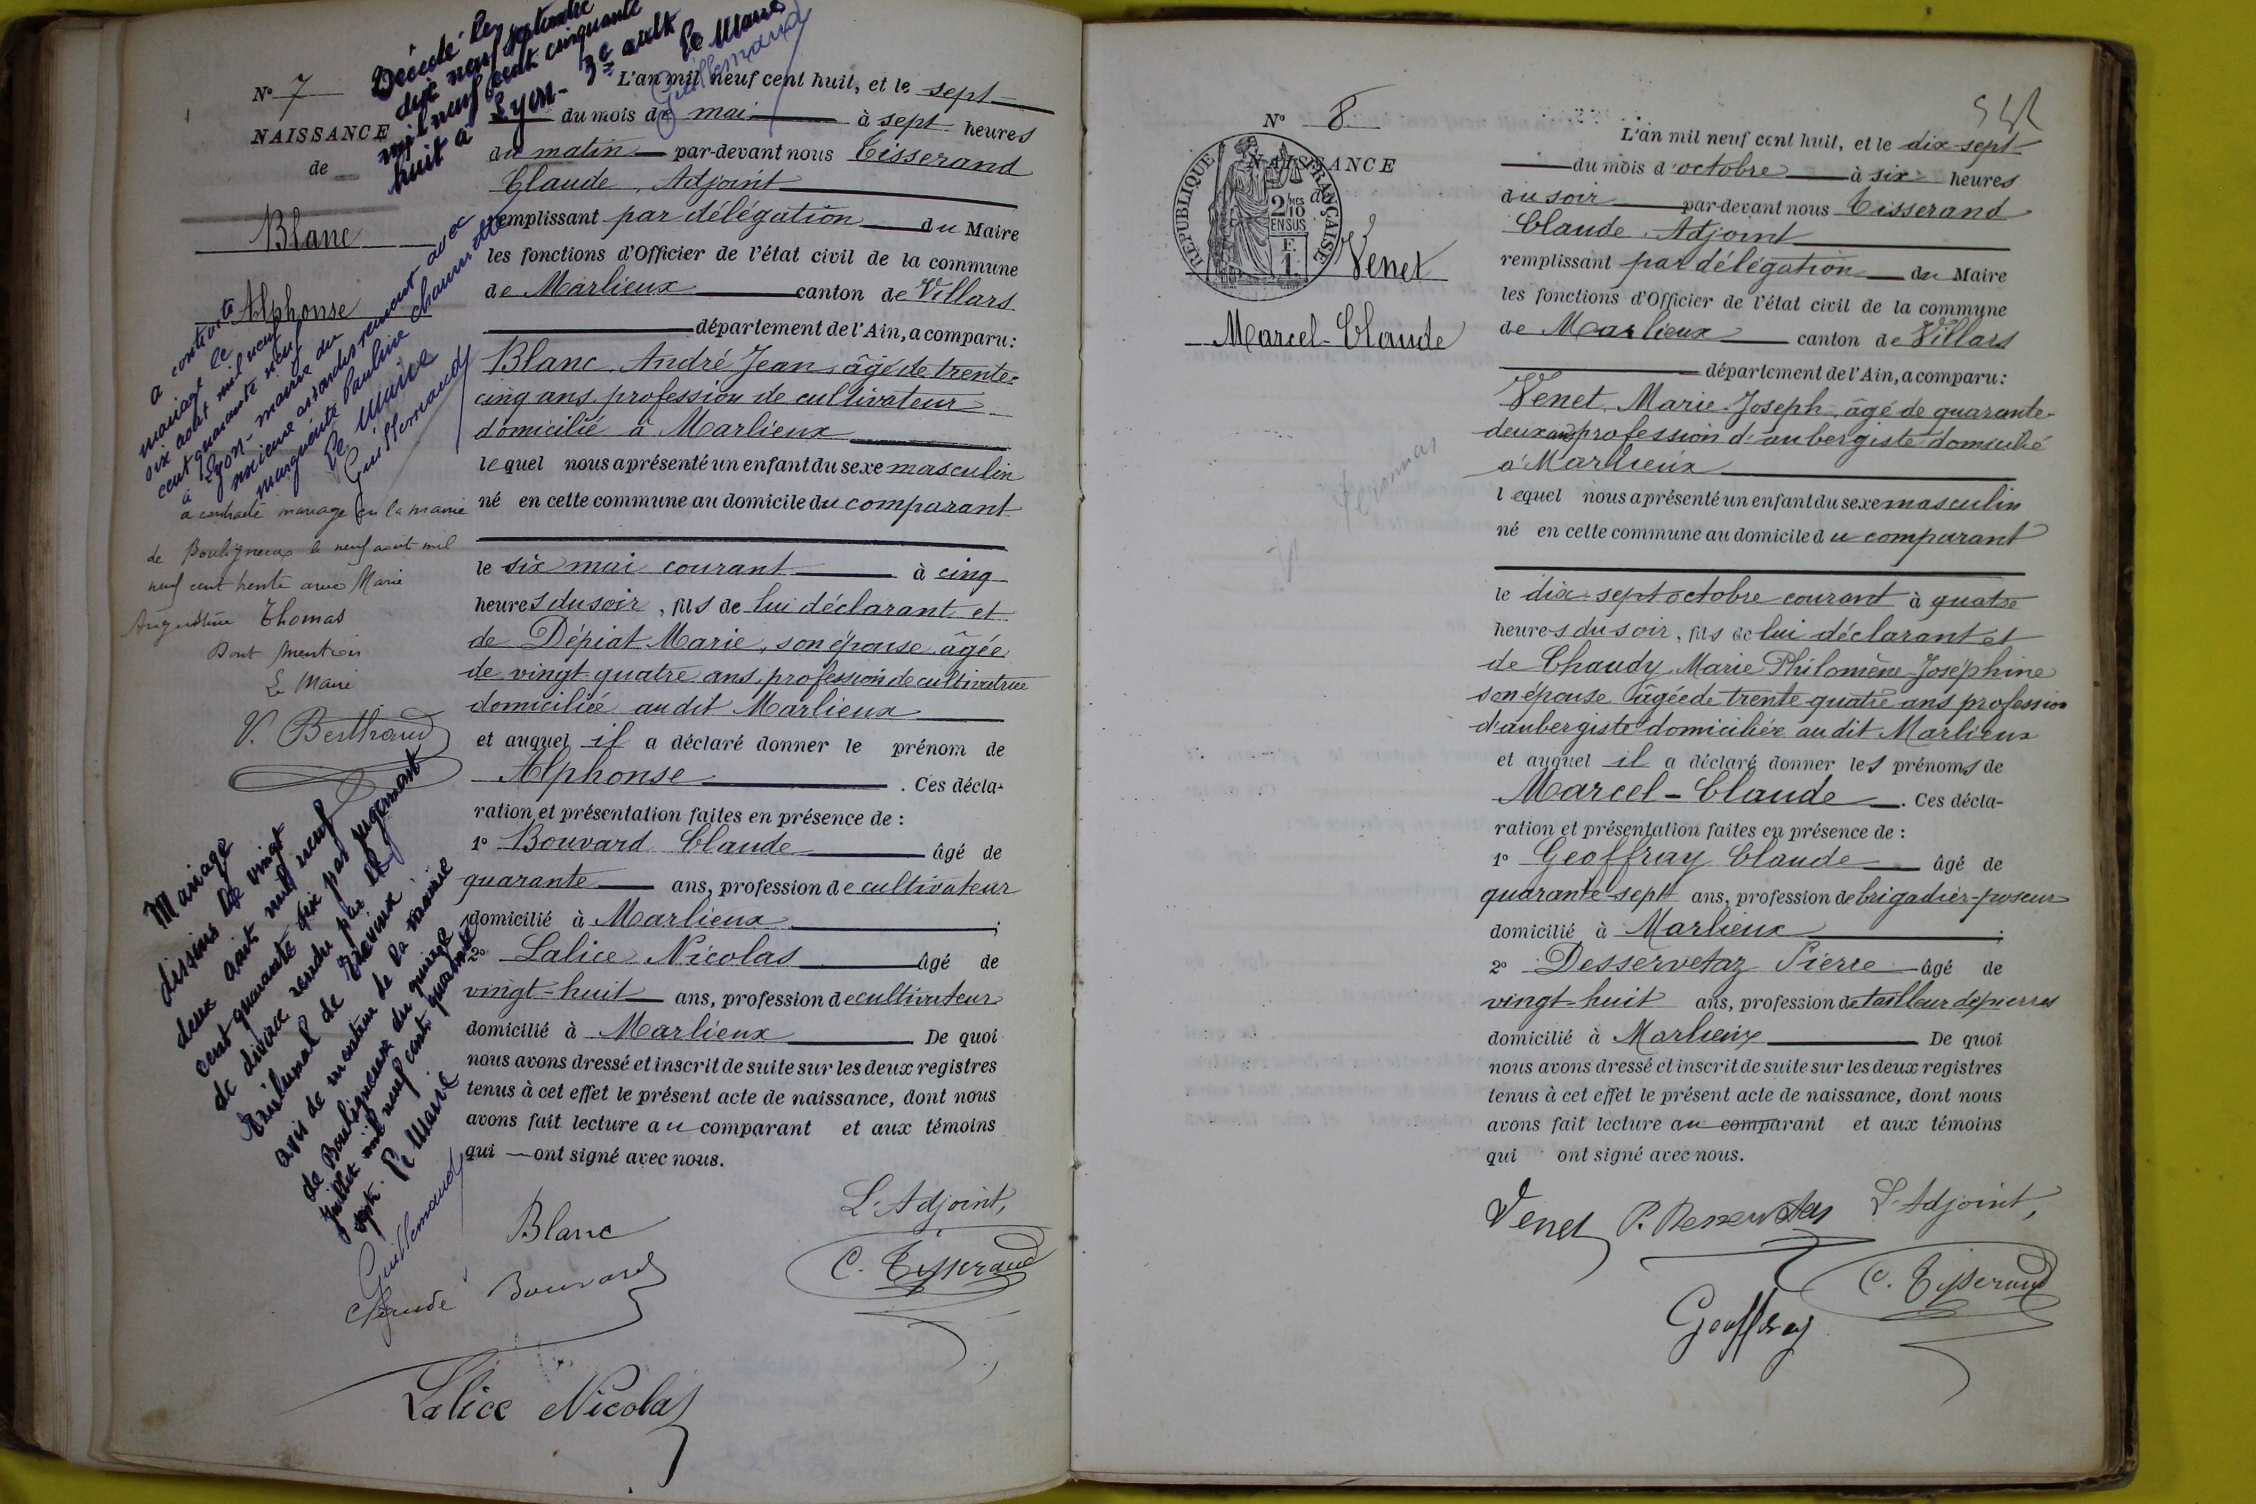 N° 7
NAISSANCE
de
Blanc
Alphonse
Décédé le
dix neuf septembre
mil neuf cent cinquante
huit à Lyon - 3e ardt
Le Maire
Guillemaud
a contracté
mariage le
six août mil neuf
cent quarante neuf
à Lyon - mairie du
arrondissement avec
Marguerite Pauline
Le Maire
Guillemaud
a contracté mariage en la mairie
de Bouligneux le neuf août mil
neuf cent trente avec Marie
Augustine Thomas
Dont mention
Le Maire
V. Berthaud
Mariage
dissous le vingt
deux août mil neuf
cent quarante six par jugement
de divorce rendu par le
Tribunal de Trévoux
avis de mention de la mairie
de Bouligneux du quinze
juillet mil neuf cent quarante
sept. Le Maire
Guillemaud
L'an mil neuf cent huit, et le sept
du mois de mai à sept heures
du matin par-devant nous Tisserand
Claude, Adjoint
remplissant par délégation du Maire
les fonctions d'Officier de l'état civil de la commune
de Marlieux canton de Villars
département de l'Ain, a comparu:
Blanc, André Jean, âgé de trente-
cinq ans, profession de cultivateur
domicilié à Marlieux
lequel nous a présenté un enfant du sexe masculin
né en cette commune au domicile du comparant
le six mai courant à cinq
heures du soir, fils de lui déclarant et
de Dépiat Marie, son épouse âgée
de vingt-quatre ans, profession de cultivatrice
domiciliée audit Marlieux
et auquel il a déclaré donner le prénom de
Alphonse. Ces décla-
ration et présentation faites en présence de :
1° Bouvard Claude âgé de
quarante ans, profession de cultivateur
domicilié à Marlieux ;
2° Lalice Nicolas âgé de
vingt-huit ans, profession de cultivateur
domicilié à Marlieux De quoi
nous avons dressé et inscrit de suite sur les deux registres
tenus à cet effet le présent acte de naissance, dont nous
avons fait lecture au comparant et aux témoins
qui ont signé avec nous.
Blanc
L'Adjoint,
Claude Bouvard
C. Tisserand
Lalice Nicolas
N° 8
NAISSANCE
de
REPUBLIQUE FRANÇAISE
2/10
EN SUS
F.
1.
Venet
Marcel-Claude
L'an mil neuf cent huit, et le dix-sept
du mois d'octobre à six heures
du soir par-devant nous Tisserand
Claude, Adjoint
remplissant par délégation du Maire
les fonctions d'Officier de l'état civil de la commune
de Marlieux canton de Villars
département de l'Ain, a comparu:
Venet, Marie-Joseph, âgé de quarante-
deux ans profession d'aubergiste domicilié
à Marlieux
lequel nous a présenté un enfant du sexe masculin
né en cette commune au domicile du comparant
le dix-sept octobre courant à quatre
heures du soir, fils de lui déclarant et
de Chaudy, Marie Philomène-Joséphine
son épouse âgée de trente-quatre ans profession
d'aubergiste domiciliée audit Marlieux
et auquel il a déclaré donner les prénoms de
Marcel-Claude. Ces décla-
ration et présentation faites en présence de :
1° Geoffray Claude âgé de
quarante-sept ans, profession de brigadier-poseur
domicilié à Marlieux ;
2° Desservetaz Pierre âgé de
vingt-huit ans, profession de tailleur de pierres
domicilié à Marlieux De quoi
nous avons dressé et inscrit de suite sur les deux registres
tenus à cet effet le présent acte de naissance, dont nous
avons fait lecture au comparant et aux témoins
qui ont signé avec nous.
Venet
L'Adjoint,
C. Tisserand
Geoffray